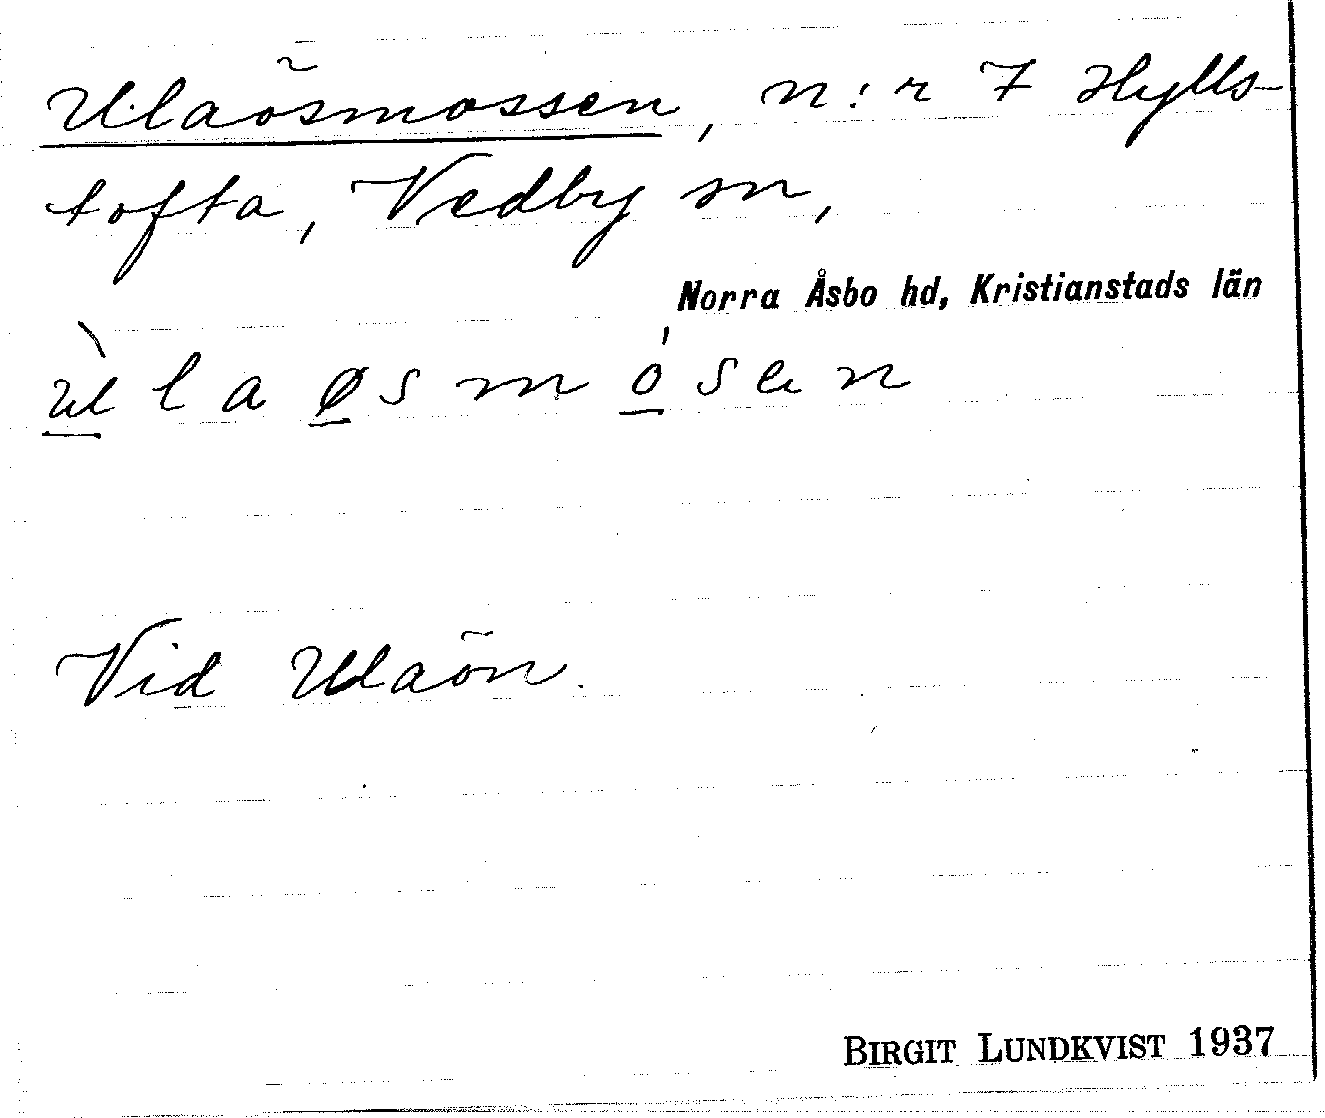 Ulaösmossen, n:r 7 Hylls-
tofta, Vedby sn,
Norra Åsbo hd, Kristianstads län
laøsmosen
Vid Ulaön.
BIRGIT LUNDKVIST 1937